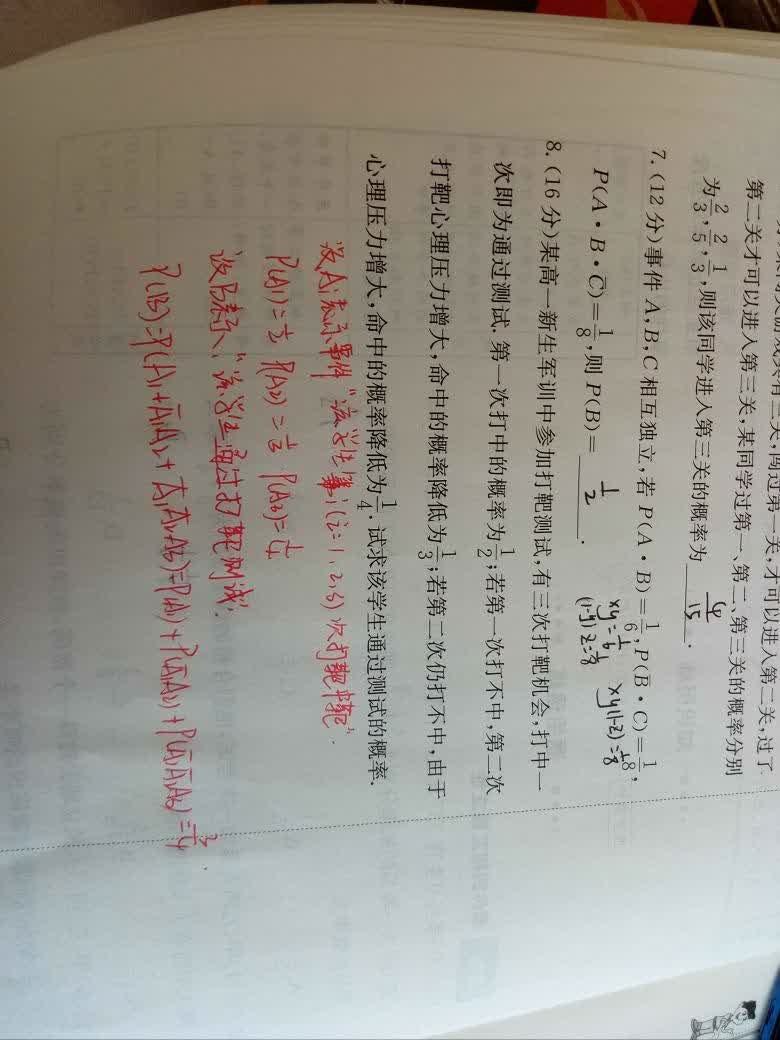 第二关才可以进入第三关,某同学过第一、第二、第三关的概率分别
为2/3,2/5,1/3,则该同学进入第三关的概率为 4/15 .
7. (12 分)事件 A,B,C 相互独立,若 P(A·B)=1/6,P(B̄·C)=1/8,
P(A·B·C̄)=1/8,则 P(B)= 1/2 .
xy=1/6
(1-y)z=1/8
xy(1-z)=1/8
8. (16 分)某高一新生军训中参加打靶测试,有三次打靶机会,打中一
次即为通过测试.第一次打中的概率为1/2;若第一次打不中,第二次
打靶心理压力增大,命中的概率降低为1/3;若第二次仍打不中,由于
心理压力增大,命中的概率降低为1/4.试求该学生通过测试的概率.
设Ai表示事件“该学生第i(i=1,2,3)次打靶中靶”.
P(A1)=1/2 P(A2)=1/3 P(A3)=1/4
设B表示“该学生通过打靶测试”.
P(B)=P(A1+Ā1A2+Ā1Ā2A3)=P(A1)+P(Ā1A2)+P(Ā1Ā2A3)=3/4.